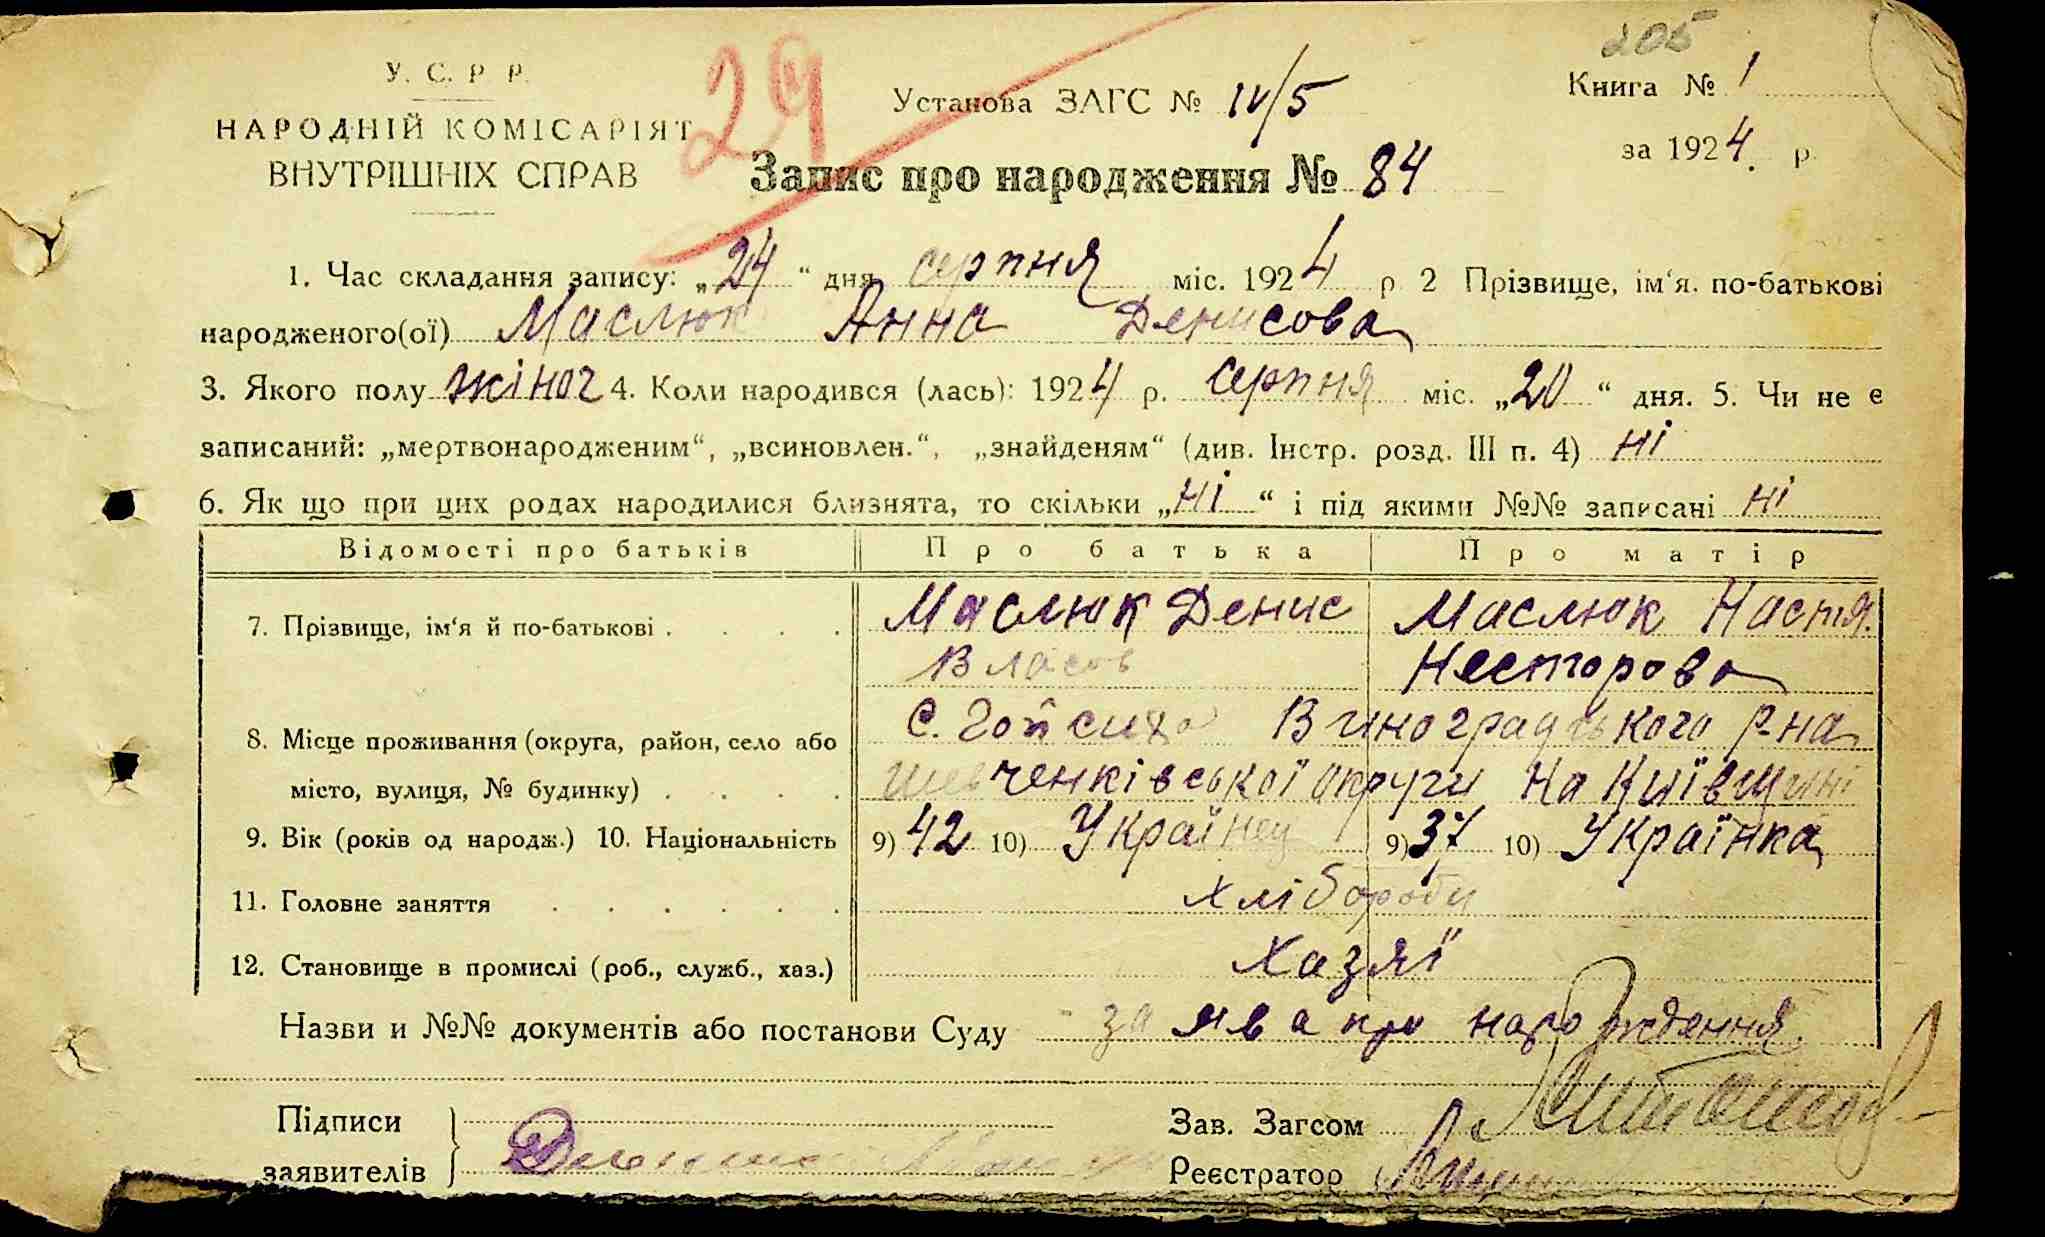 205
У. С. Р. Р.
НАРОДНІЙ КОМІСАРІЯТ
ВНУТРІШНІХ СПРАВ
29
Установа ЗАГС № IV/5
Книга № 1
за 1924 р.
Запис про народження № 84
1. Час складання запису: „24“ дня серпня міс. 1924 р. 2 Прізвище, ім‘я. по-батькові
народженого(ої) Маслюк Анна Денисова
3. Якого полу жіноч 4. Коли народився (лась): 1924 р. серпня міс. „20“ дня. 5. Чи не є
записаний: „мертвонародженим“, „всиновлен.“, „знайденям“ (див. Інстр. розд. III п. 4) ні
6. Як що при цих родах народилися близнята, то скільки „ні“ і під якими №№ записані ні
Відомості про батьків Про батька Про матір
7. Прізвище, ім‘я й по-батькові . . . . Маслюк Денис Маслюк Настя.
Власов Несторова
8. Місце проживання (округа, район, село або с. Виноградського р-на
місто, вулиця, № будинку) . . . . Шевченківської округи на Київщині
9. Вік (років од народж.) 10. Національність 9) 42 10) Українец 9) 37 10) Українка
11. Головне заняття . . . . . . хлібороби
12. Становище в промислі (роб., служб., хаз.) Хазяї
Назви и №№ документів або постанови Суду заява про народждення.
Підписи
заявителів
Зав. Загсом
Реєстратор